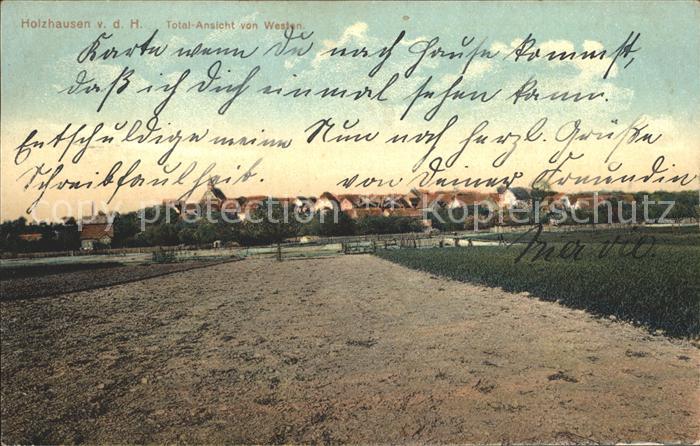 Holzhausen v. d. H. Total-Ansicht von Westen.
Karte wenn Du nach Hause kommst,
daß ich Dich einmal sehen kann.
Entschuldige meine Nun noch herzl. Grüße
Schreibfaulheit. von Deiner Freundin
Copyright oldthing.de Kopierschutz